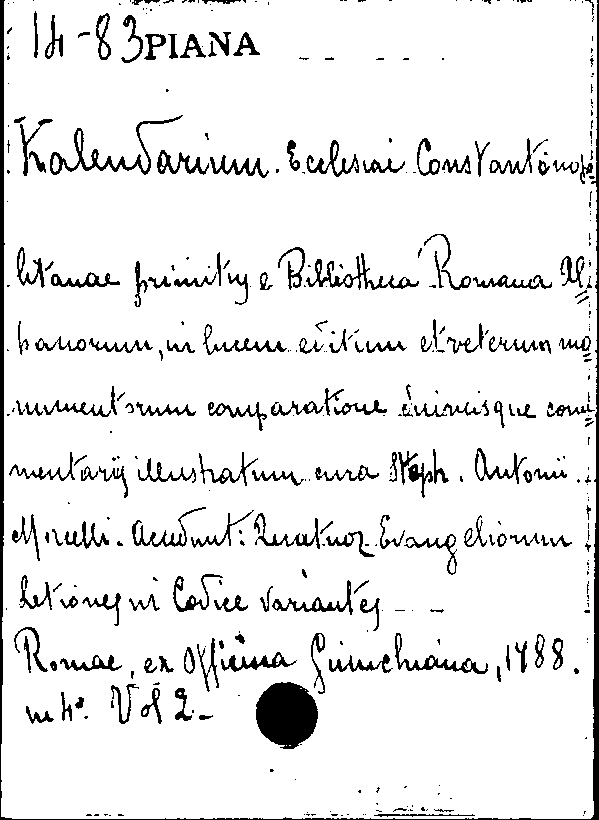 14-83 PIANA
Kalendarium. Ecclesiae Constantinopo=
litanae primity e Bibliotheca Romana Al=
banorum, in lucem editum et veterum mo=
numentorum comparatione diuinisque com=
mentarijs illustratum cura Steph. Antonii
Morcelli. Accedunt: Quatuor Evangeliorum
Letiones in Codice variantes
Romae, ex Officina Giunchiana, 1788.
in 4º. Vol 2.